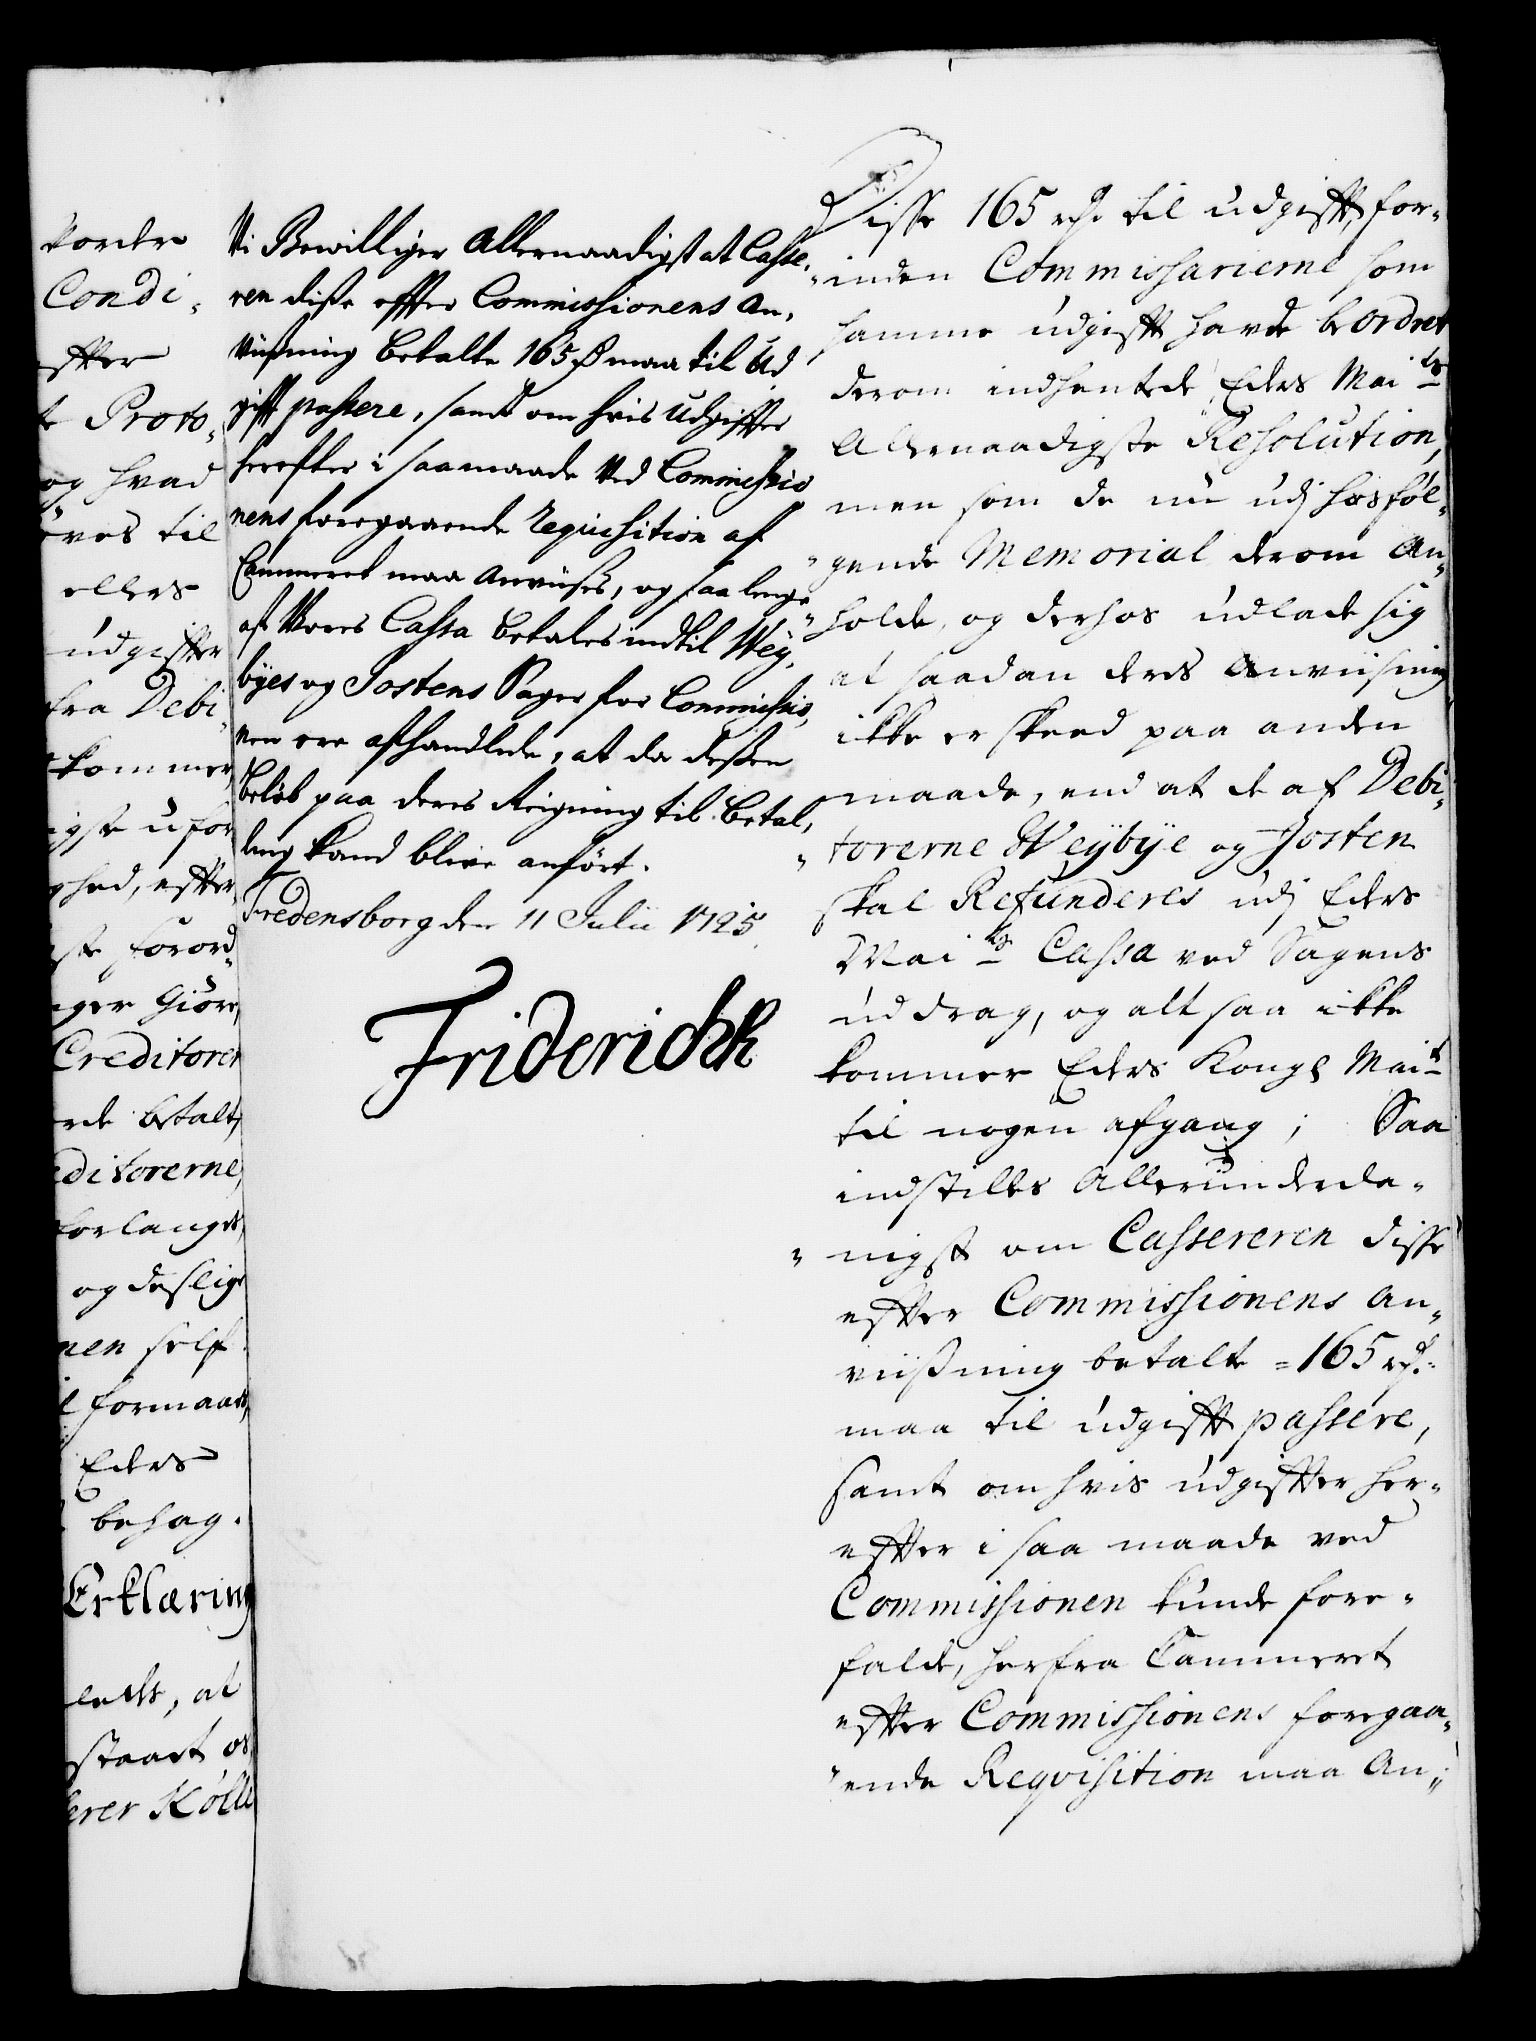 vorder
Condi-
effter
t Proto-
og hvad
öres til
ellers
udgiffter
fra Debi-
kommer,
igste ufor
ghed, effter-
gste forord-
nger Giöre,
Creditorer
rde betalt,
ditorerne,
forlanges,
og deslige
nen self
l formaae,
Eders
behag.
Erklæring
ledes, at
staart os
erer Kölle
Vi Bewilliger Allernaadigst at Casse-
ren disse effter Commissionens An-
viisning betalte 165 rdr maa til Ud
gifft passere, samt om hvis Udgiffter
herefter i saa maade ved Commissio
nens foregaaende Requisition af
Cammeret maa Anviises, og saa lenge
af Vores Cassa betales indtil Wey-
byes og Jostens Sager for Commissio-
nen ere afhandlede, at da dessen
Beløb paa deres Reigning til betal-
ling kand blive anført.
Fredensborg den 11 Julii 1725.
Friderich R
Disse 165 rdr. til udgifft, for-
inden Commissarierne som
samme udgifft havde beordret
derom indhentede Eders Maits
Allernaadigste Resolution,
men som de nu udj hosföl-
gende Memorial derom An-
holde, og derhos udlade sig
at saadan deres Anviisning
ikke er skeed paa anden
maade, end at de af Debi-
torerne Weybye og Josten
skal Refunderes udj Eders
Maits Cassa ved Sagens
uddrag, og alt saa ikke
kommer Eders Kongl Mait
til nogen afgang; Saa
indstilles Allerunderda-
nigst om Cassereren disse
effter Commissionens An-
viisning betalte =165 rdr:
maa til udgifft passere,
samt om hvis udgiffter her-
effter i saa maade ved
Commissionen kunde fore-
falde, herfra Cammeret
effter Commissionens foregaa-
ende Reqvisition maa An-